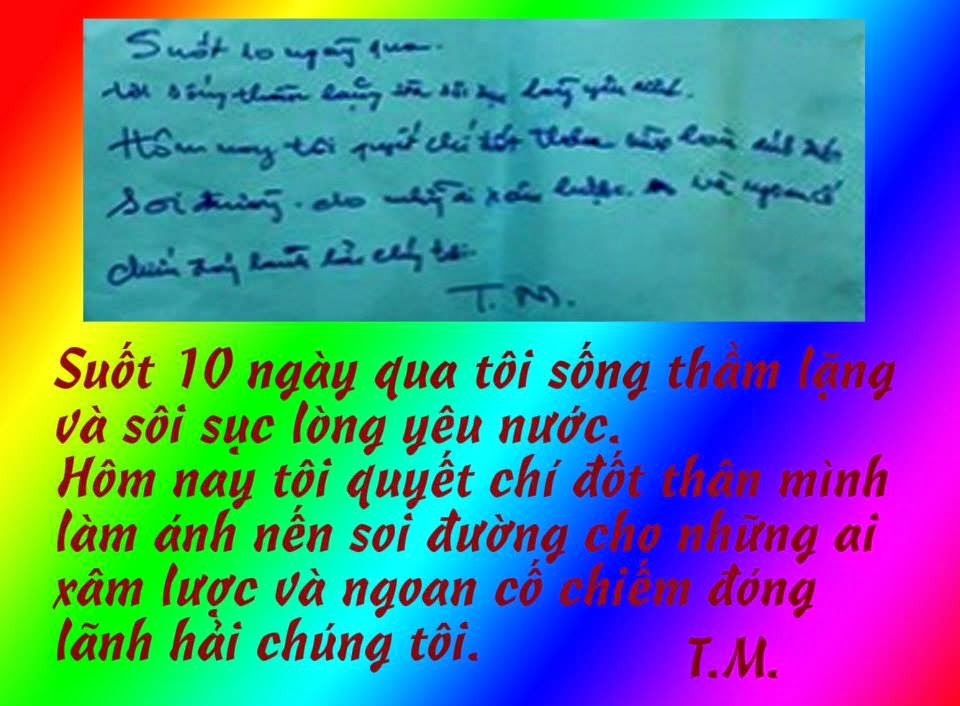 Suốt 10 ngày qua.
tôi sống thầm lặng và sôi sục lòng yêu nước.
Hôm nay tôi quyết chí đốt thân
soi đường cho những ai xâm lược và ngoan cố
chiếm đóng lãnh hải chúng tôi.
T.M.
Suốt 10 ngày qua tôi sống thầm lặng
và sôi sục lòng yêu nước.
Hôm nay tôi quyết chí đốt thân mình
làm ánh nến soi đường cho những ai
xâm lược và ngoan cố chiếm đóng
lãnh hải chúng tôi.
T.M.